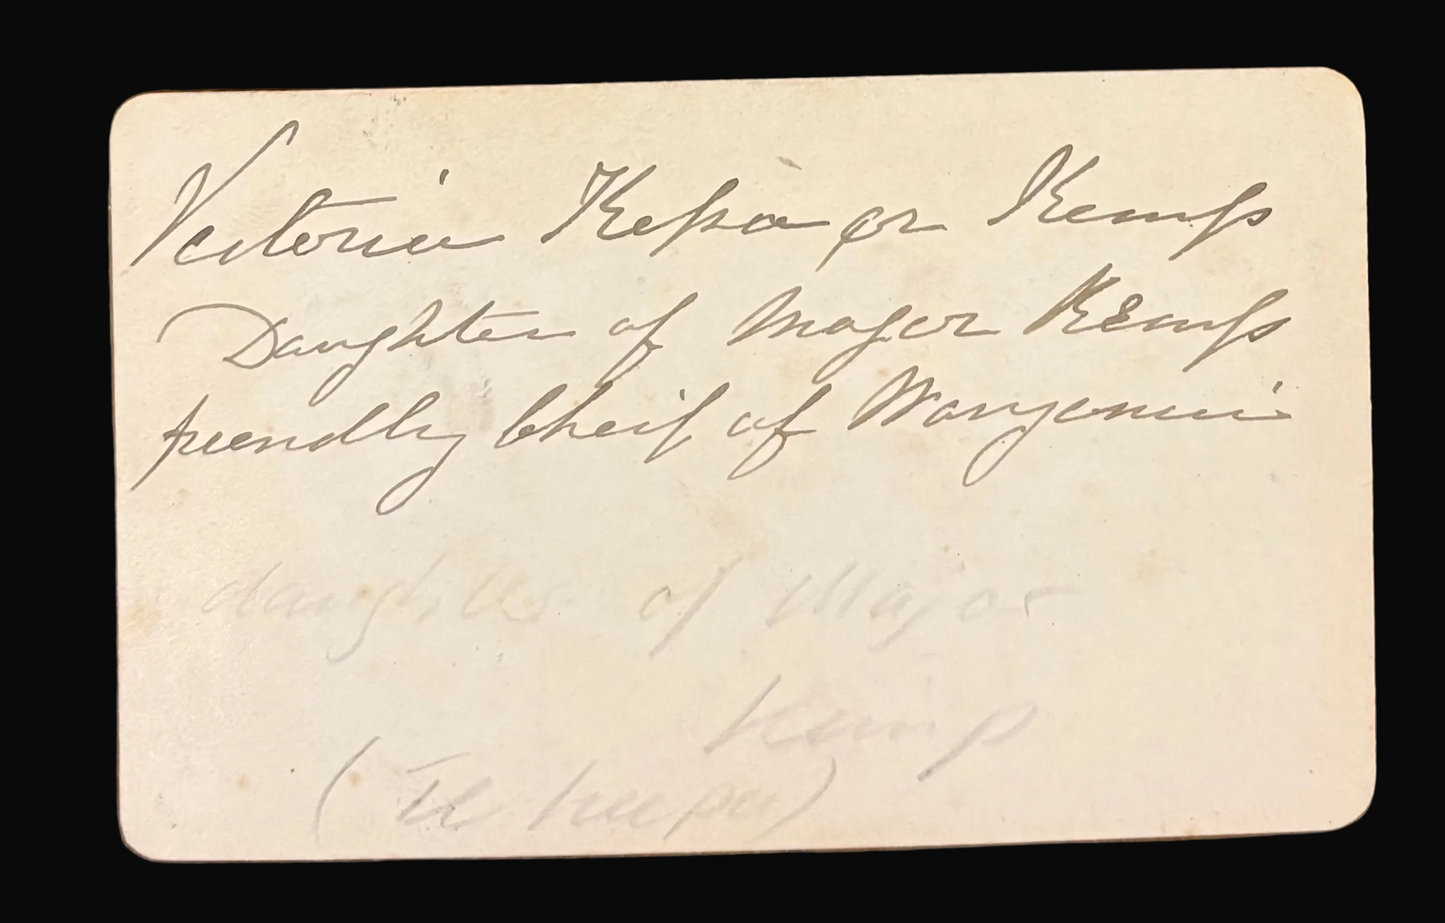 Victoria Kepa or Kemp
Daughter of Major Kemp
freendly Cheif of Wanganui
daughter of Major
Kemp
(Te Keepa)